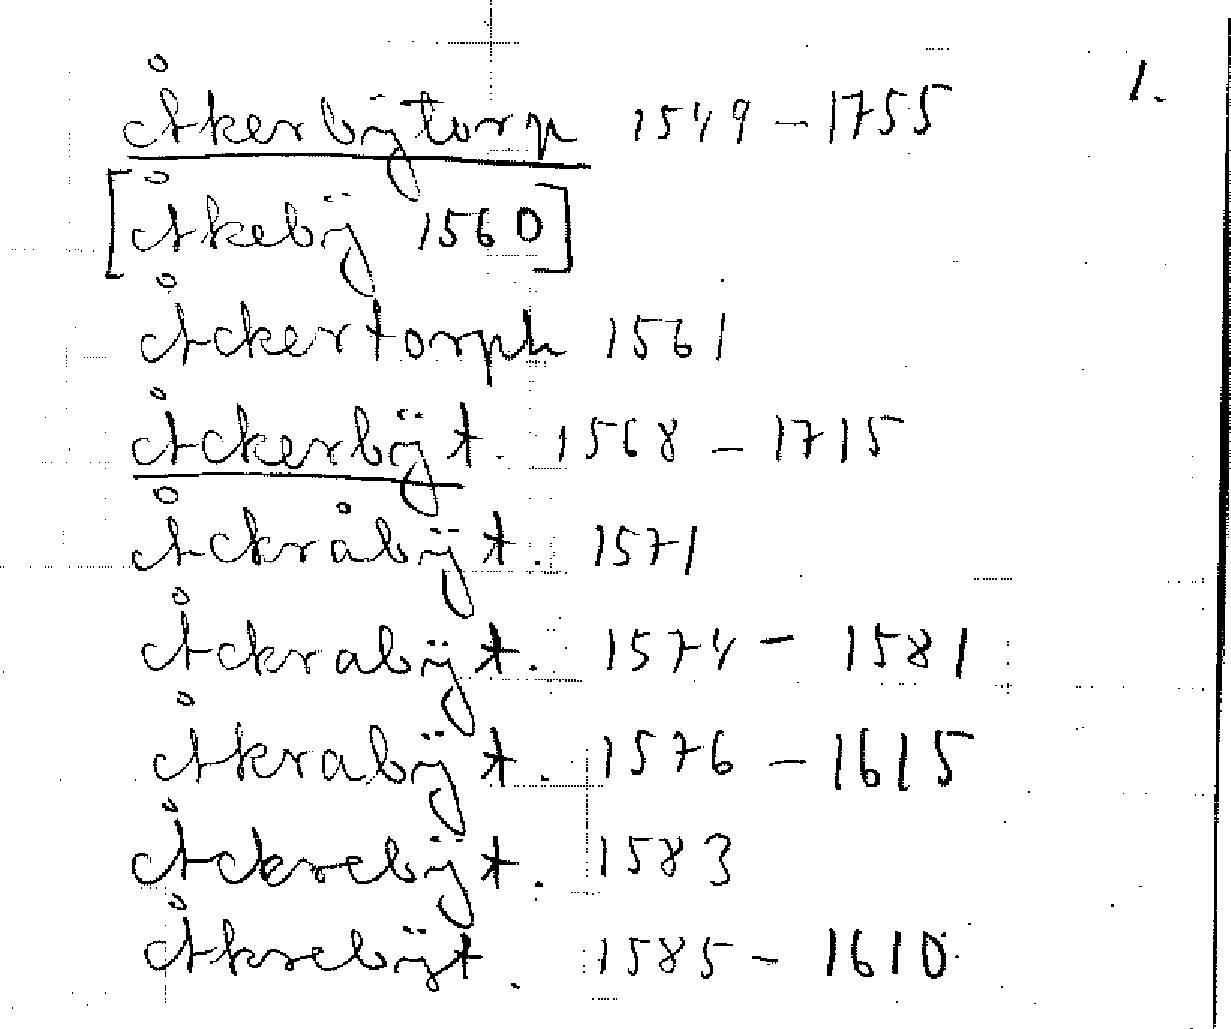 Åkerbÿtorp 1549 – 1755 1.
[Åkebÿ 1560]
Åckertorph 1561
Åckerbÿt. 1568 – 1715
Åckråbÿt. 1571
Åckrabÿt. 1574 – 1581
Åkrabÿt. 1576 – 1615
Åckrebÿt. 1583
Åkrebÿt. 1585 – 1610